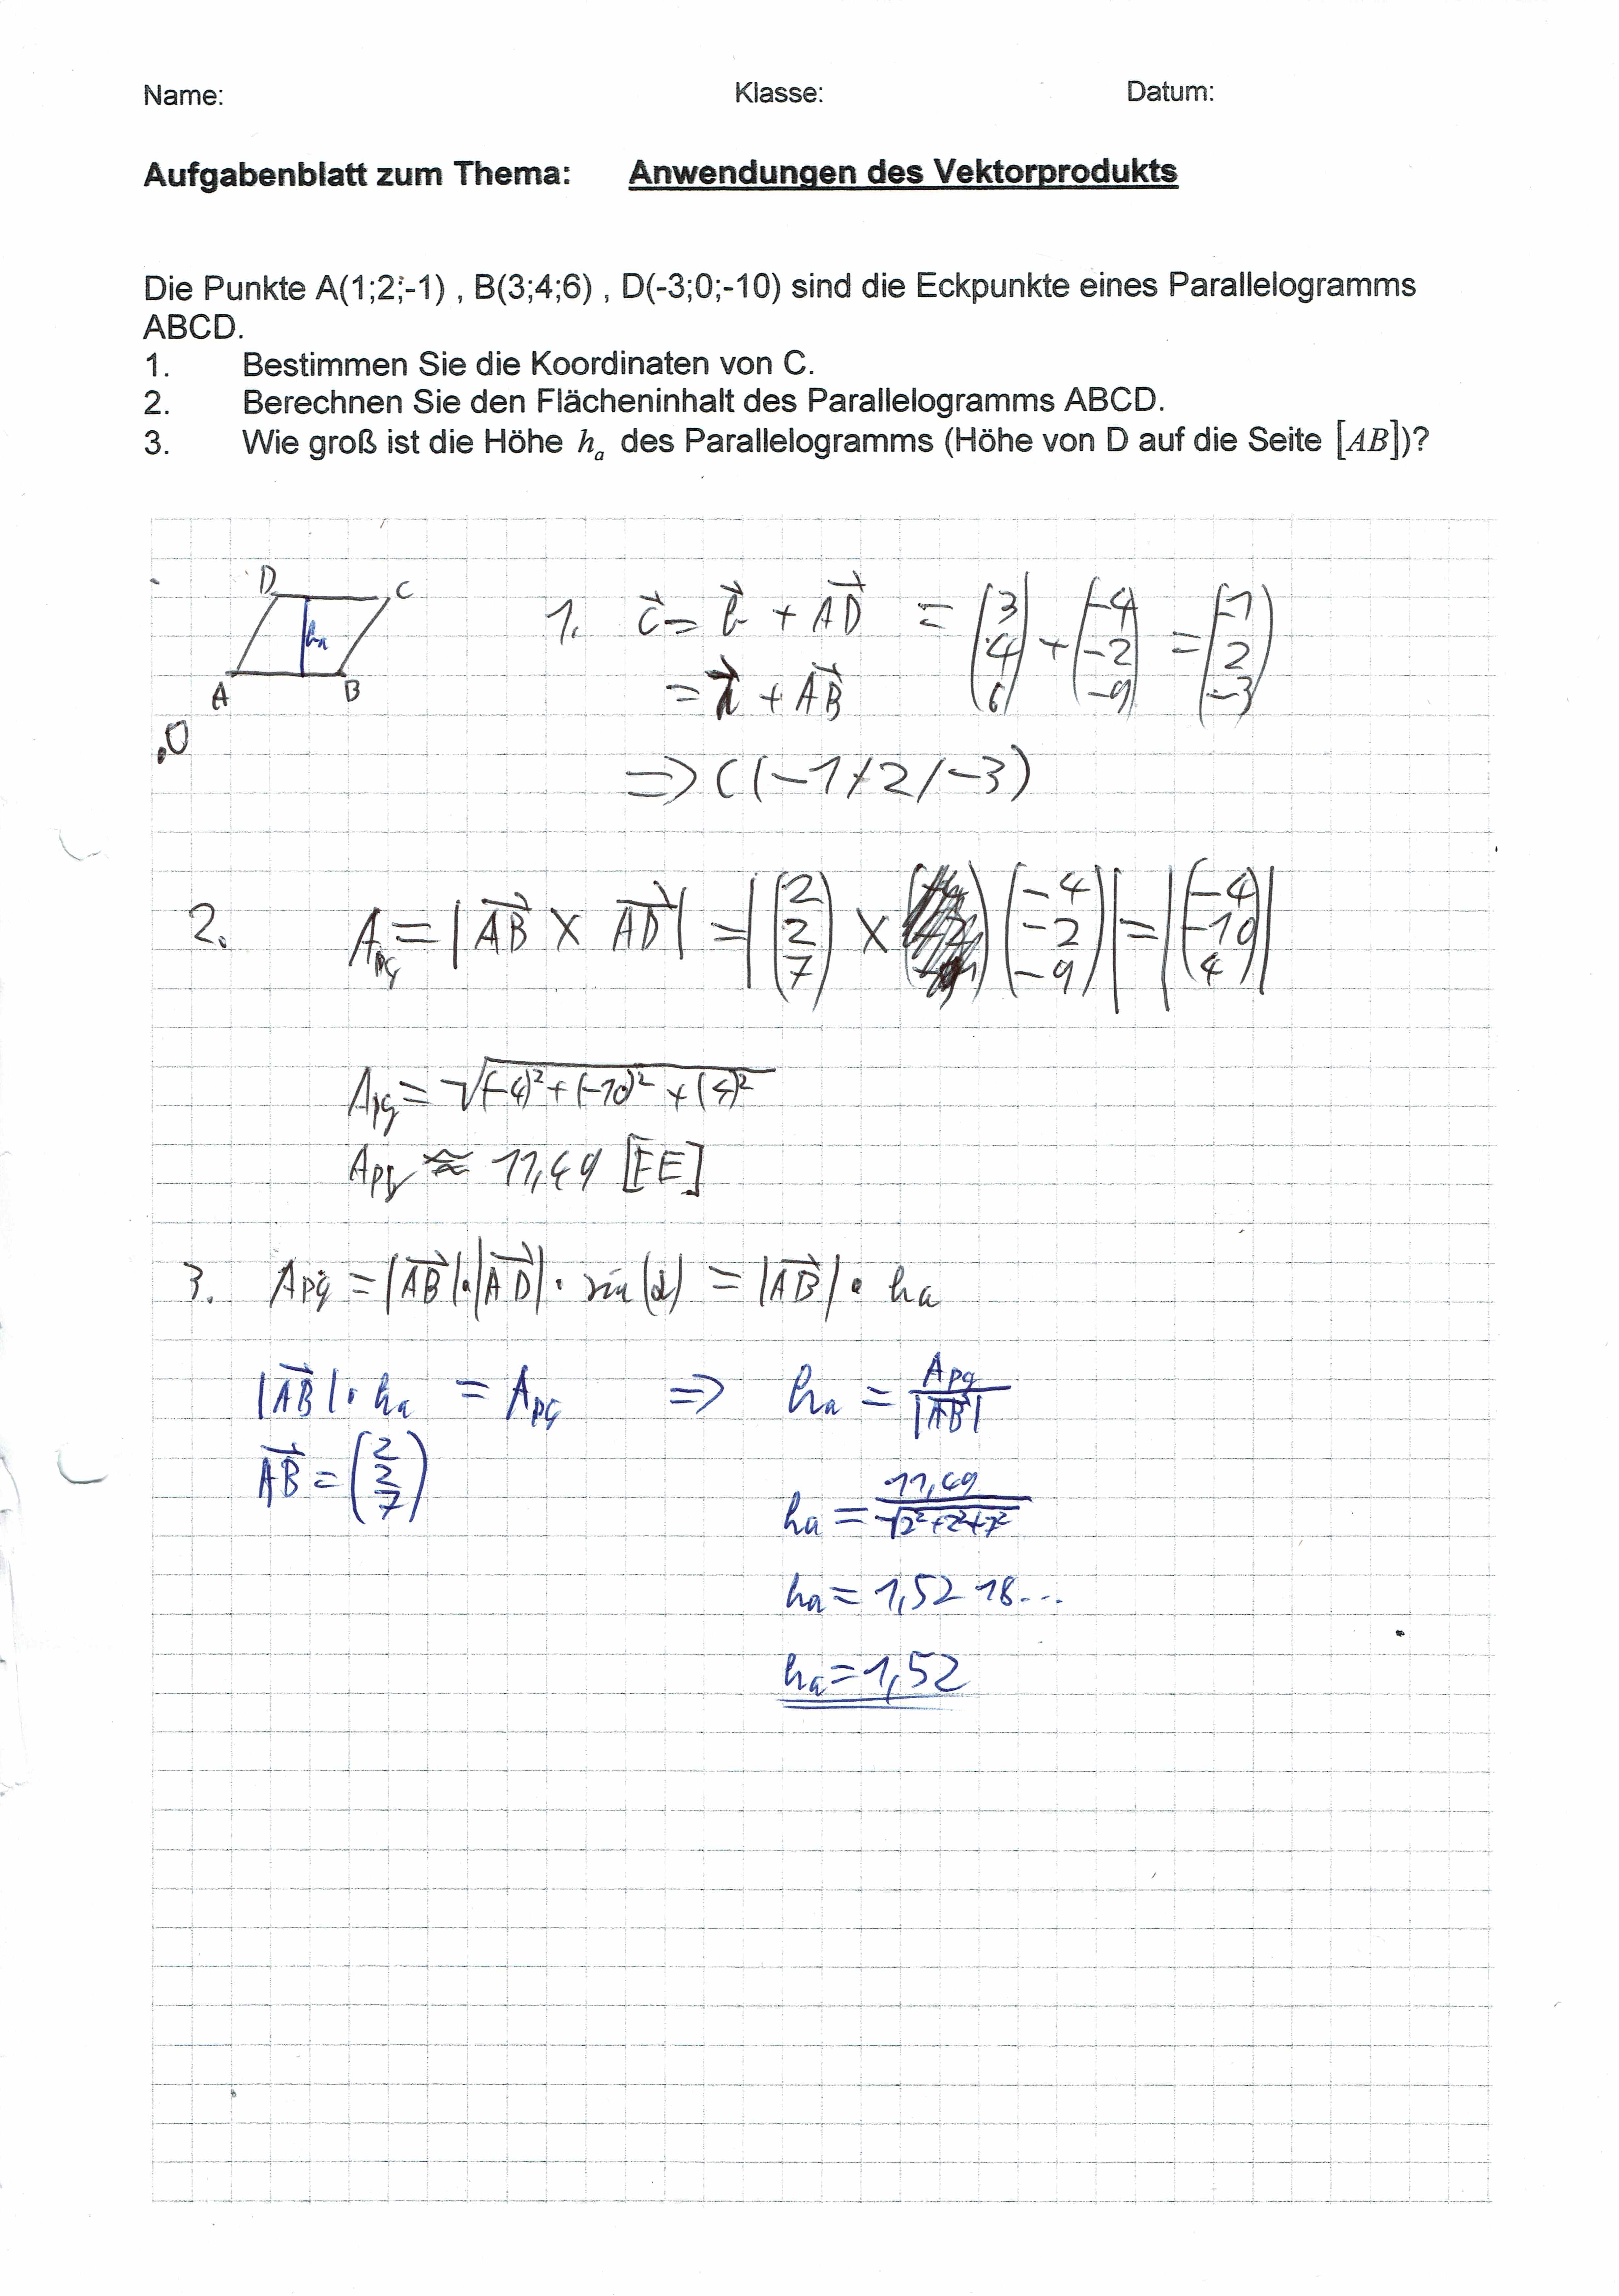 Name: Klasse: Datum:
Aufgabenblatt zum Thema: Anwendungen des Vektorprodukts
Die Punkte A(1;2;-1) , B(3;4;6) , D(-3;0;-10) sind die Eckpunkte eines Parallelogramms
ABCD.
1. Bestimmen Sie die Koordinaten von C.
2. Berechnen Sie den Flächeninhalt des Parallelogramms ABCD.
3. Wie groß ist die Höhe hₐ des Parallelogramms (Höhe von D auf die Seite [AB])?
D C
hₐ
A B
.0
1. c⃗ = b⃗ + AD⃗ = (3 4 6) + (-4 -2 -9) = (-1 2 -3)
= + AB⃗
=> C(-1/2/-3)
2. Apg = |AB⃗ × AD⃗| = |(2 2 7) × (-4 -2 -9)| = |(-4 -10 4)|
Apg = √(-4)² + (-10)² + (4)²
Apg ≈ 11,49 [FE]
3. Apg = |AB⃗|·|AD⃗|· sin(α) = |AB⃗| · hₐ
|AB⃗|· hₐ = Apg => hₐ = Apg / |AB⃗|
AB⃗ = (2 2 7)
hₐ = 11,49 / √2²+2²+7²
hₐ = 1,52 18...
hₐ = 1,52